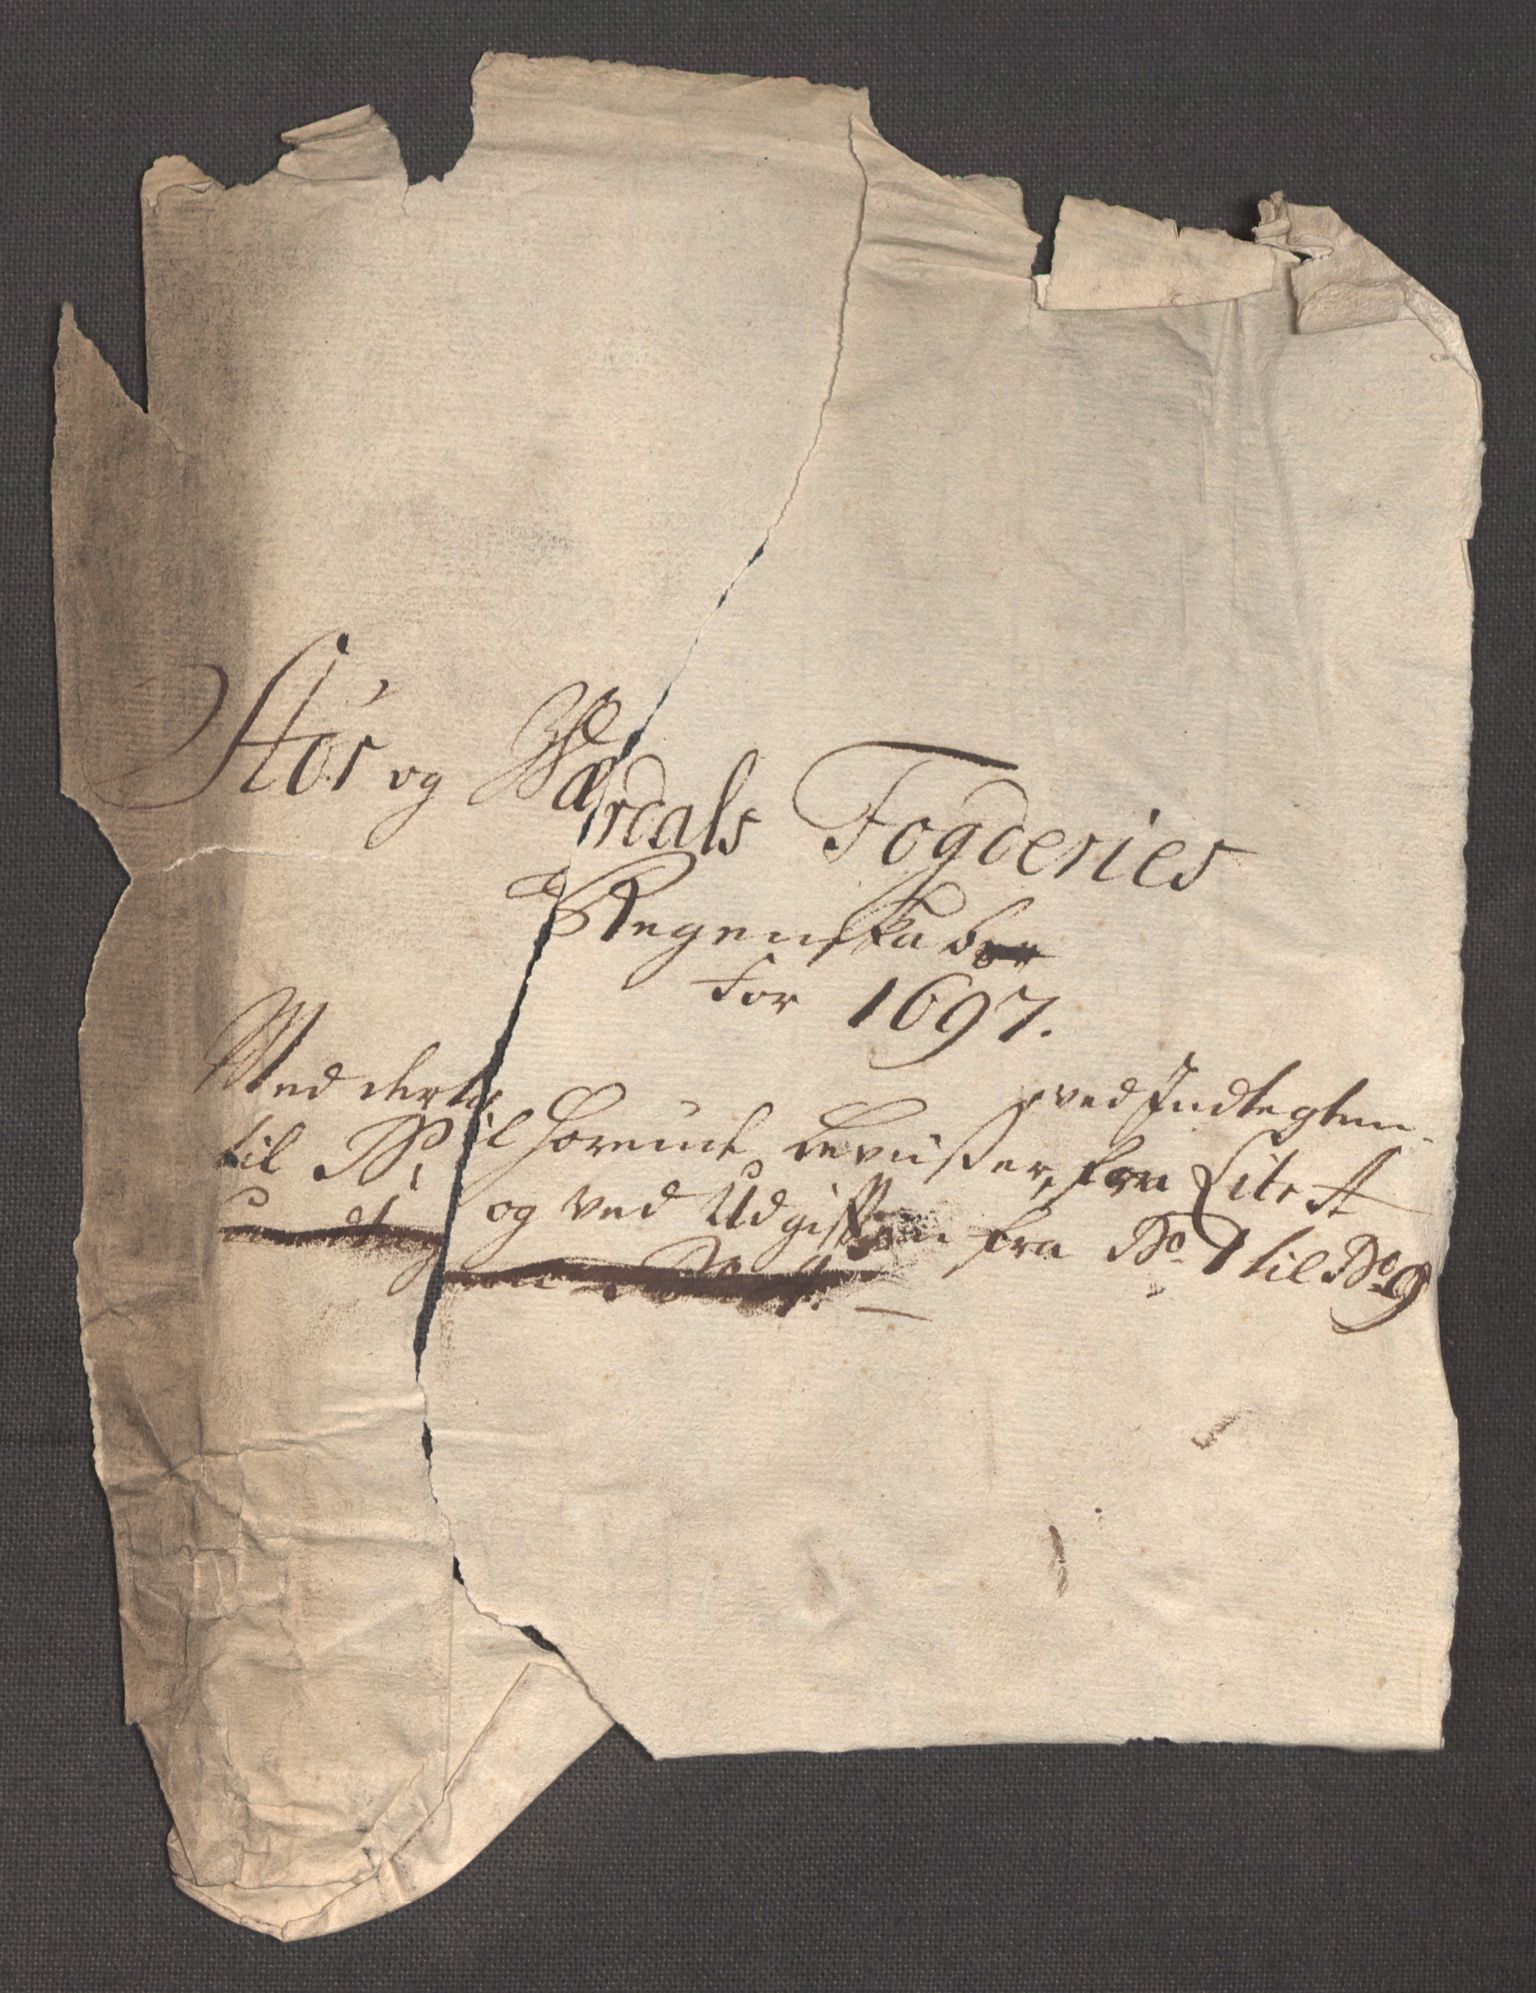 Stør og Wærdals Fogderies
Regenskaber
for 1697.
Med dertil Hørende Beviißer, ved Indtegten fra Litr A
til W, og ved Udgiften fra No 1 til No 9